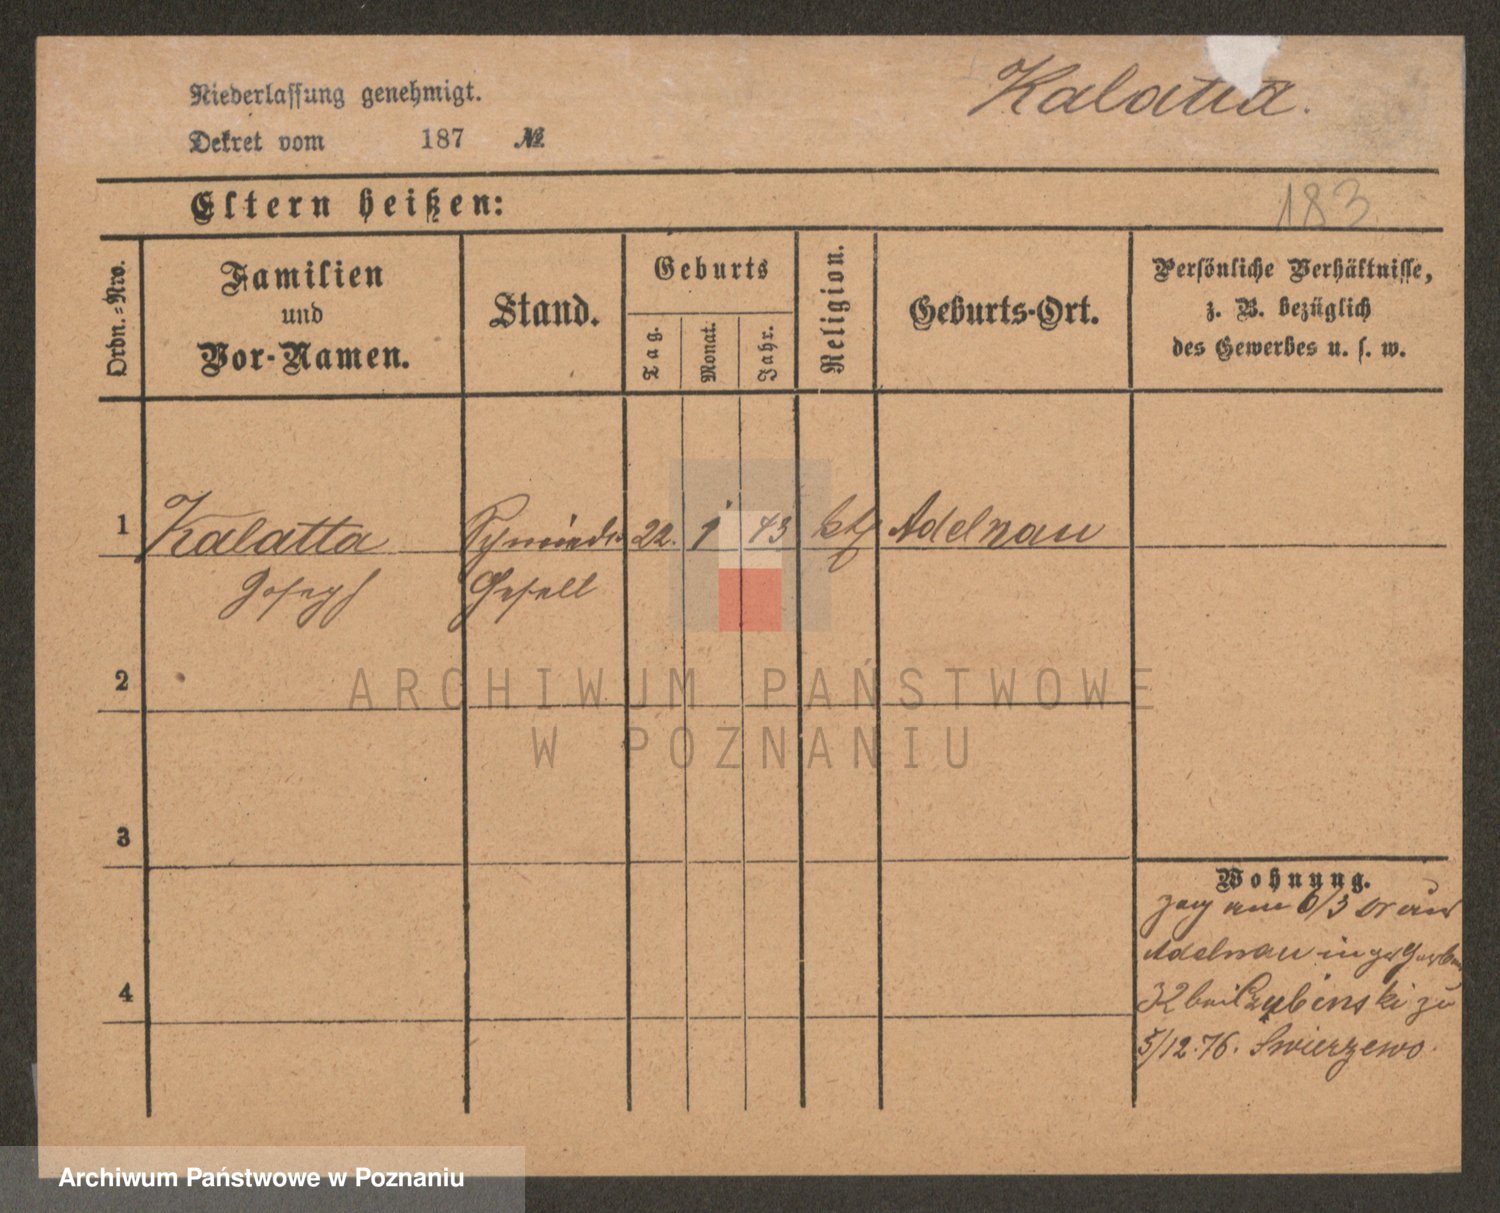 Kalatta.
Niederlassung genehmigt.
Dekret vom 187 №
183
Eltern heißen:
Ordn.-Nro.
Familien
und
Vor-Namen.
Stand.
Geburts
Tag.
Monat.
Jahr.
Religion.
Geburts-Ort.
Persönliche Verhältnisse,
z. B. bezüglich
des Gewerbes u. s. w.
1 Kalatta Schmiede 22. 1 43 kth Adelnau
Joseph Gesell
2
ARCHIWUM PAŃSTWOWE
W POZNANIU
3
Wohnung.
zog am 6/3 cr aus
Adelnau in
4
32 bei Czubinski zu
5/12.76. Swierzewo.
Archiwum Państwowe w Poznaniu